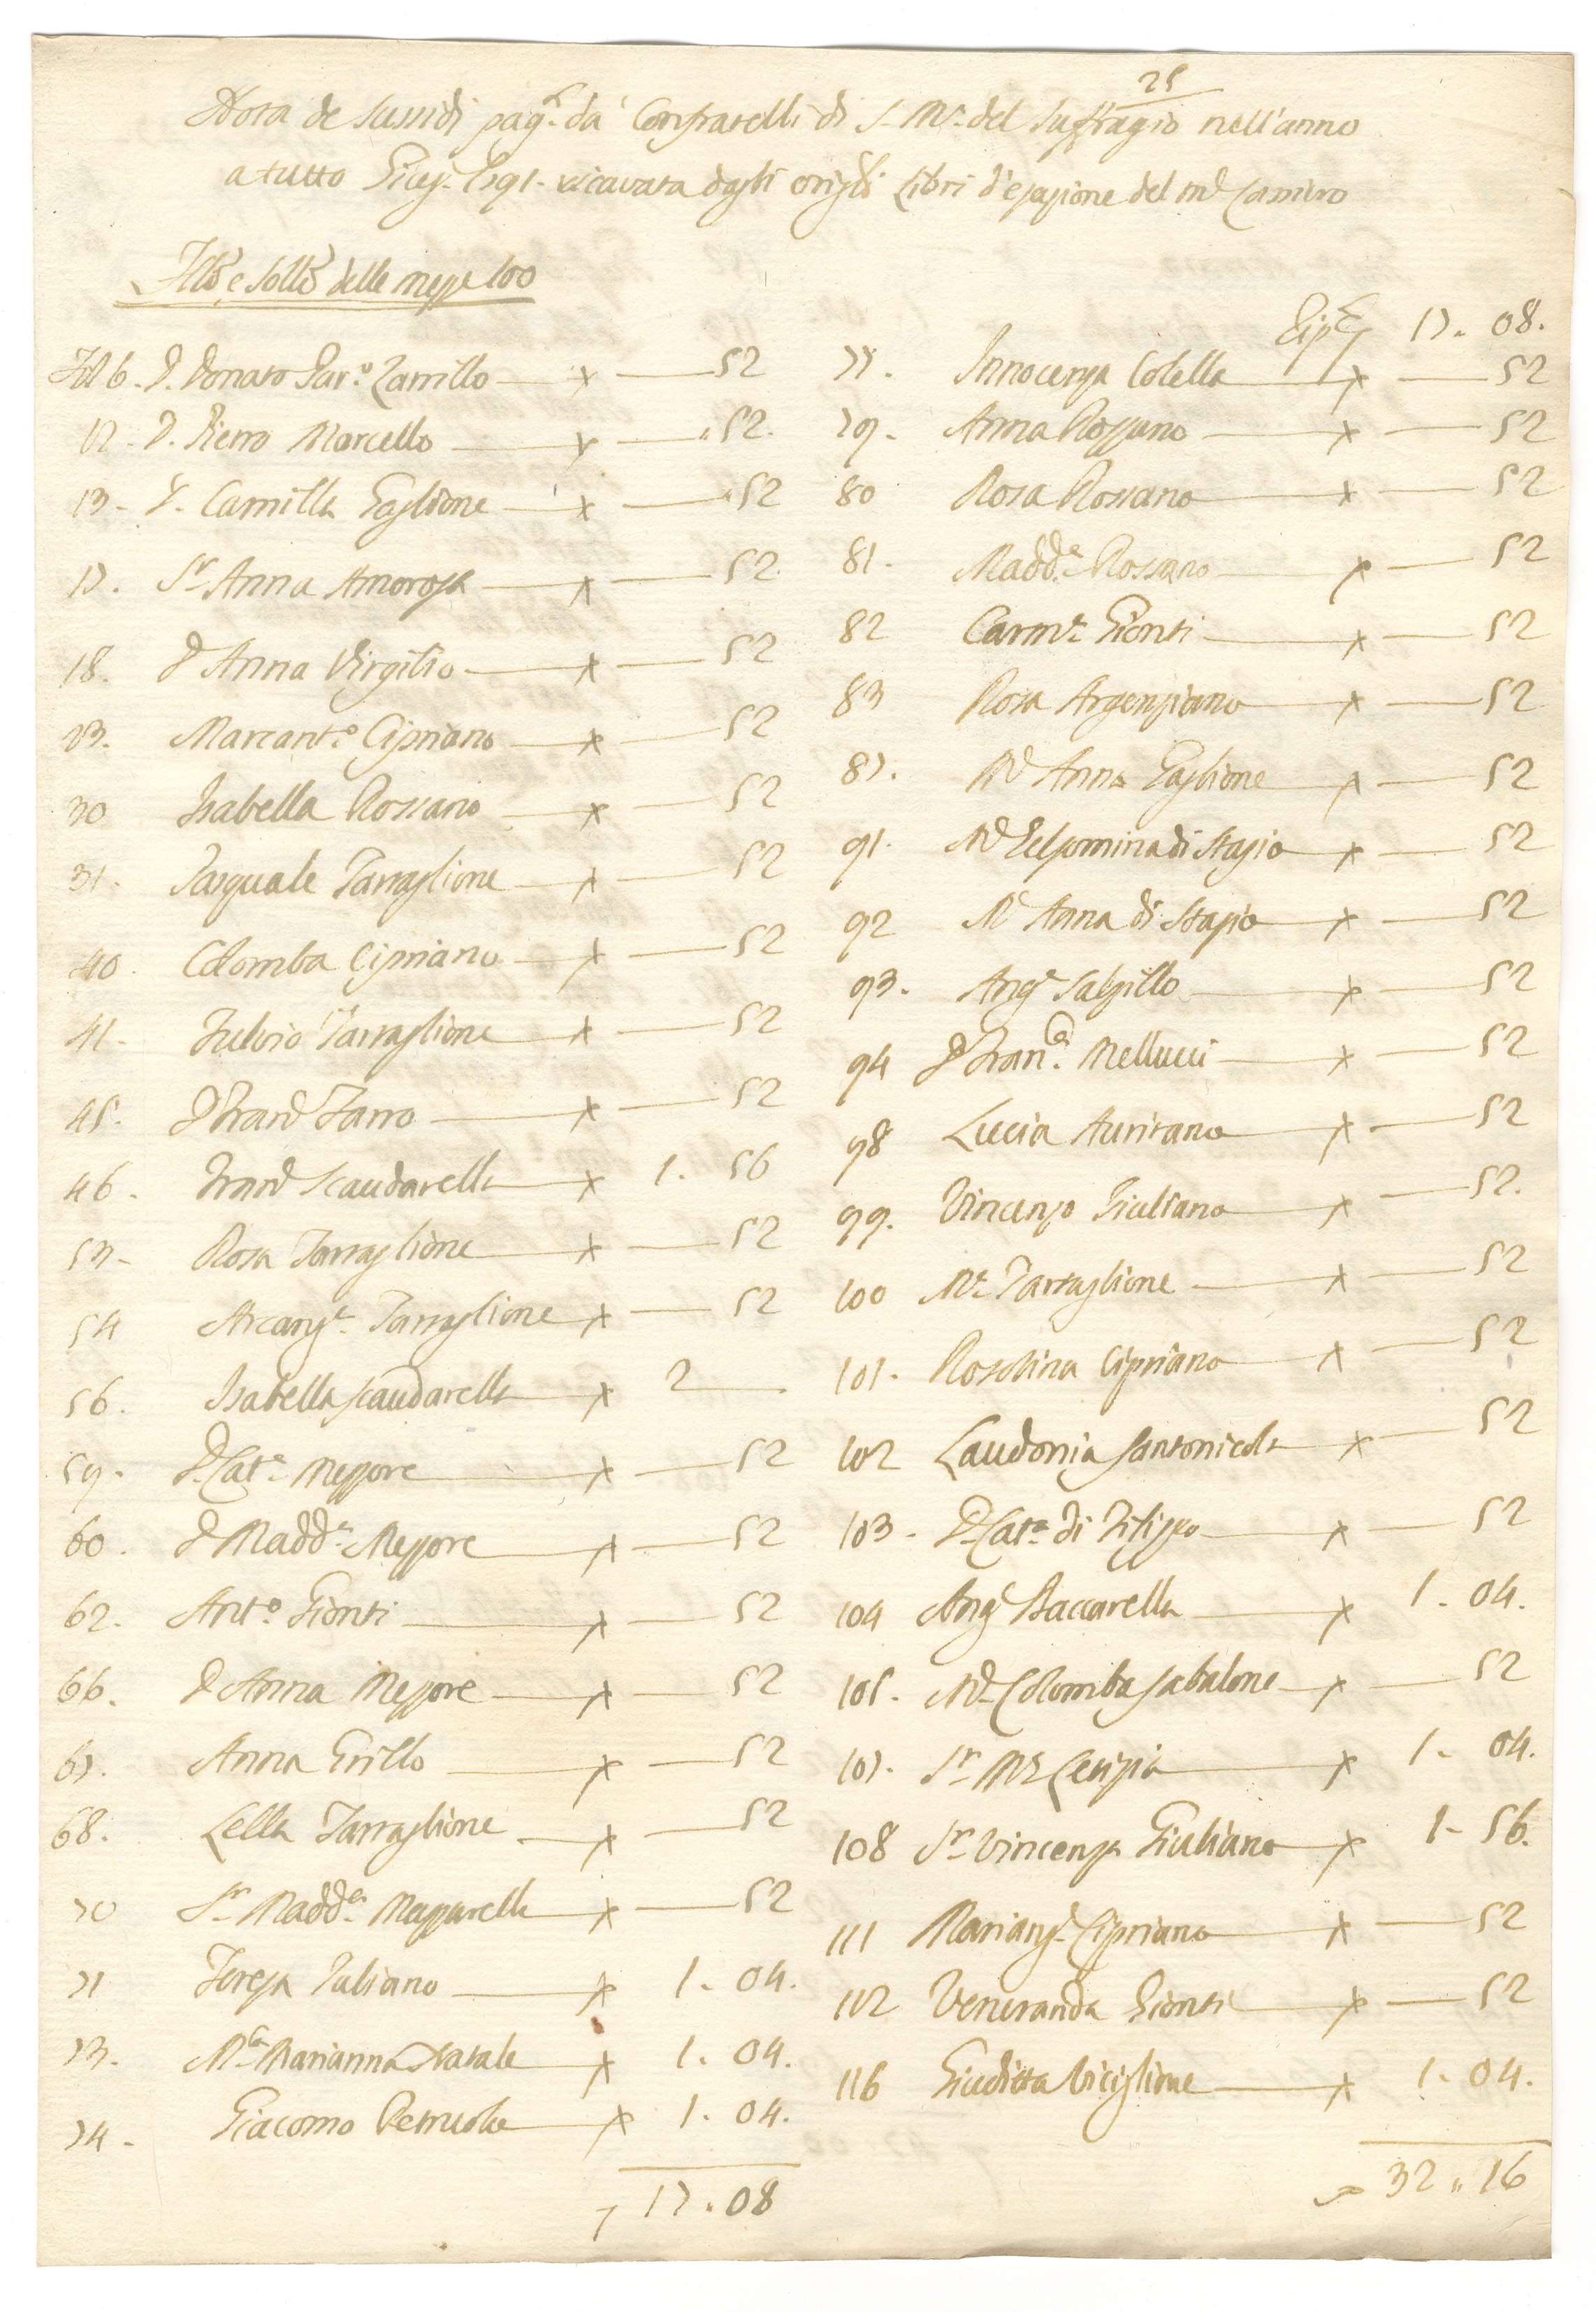 25
Nota de sussidi pag.ti da Confratelli di S. M.a del Suffragio nell'anno
a tutto Giug. 1791. ricavata dagli orig.li Libri d'esazione del m.d Cassiero
Fllo e sollo delle mezze 100
Fol 6. D. Donato Par.o Zarrillo x 52
12. D. Pietro Marcello x 52.
13. D. Camilla Taglione x 52
17. S.r Anna Amorosa x 52
18. D Anna Virgilio x 52
23. Marcant.o Cipriano x 52
30 Isabella Rossano x 52
31. Pasquale Tartaglione x 52
40. Colomba Cipriano x 52
41. Fulvio Tartaglione x 52
45. D Fran.d Farro x 52
46. Fran.d Scaudarella x 1. 56
53. Rosa Tartaglione x 52
54 Arcang.a Tartaglione x 52
56. Isabella Scaudarella x 2 .
59. D. Cat.a Mezzore x 52
60. D Madd.a Mezzore x 52
62. Ant.o Gionti x 52
66. D Anna Mezzore x 52
67. Anna Grillo x 52
68. Lella Tartaglione x 52
70 S.r Madd.a Mazzarella x 52
71 Teresa Juliano x 1. 04.
73. M.a Marianna Natale x 1. 04.
74. Giacomo Petruolo x 1. 04.
17. 08
17. 08.
77. Innocenza Colella x 52
79. Anna Rossano x 52
80 Rosa Rossano x 52
81. Madd.a Rossano x 52
82 Carm.a Gionti x 52
83 Rosa Argenziano x 52
87. M.d Anna Taglione x 52
91. M.d Gelsomina di Stasio x 52
92 M.d Anna di Stasio x 52
93. Ang.a Salzillo x 52
94 D Fran.ca Mellucci x 52
98 Lucia Auritano x 52
99. Vincenzo Giuliano x 52.
100 M.a Tartaglione x 52
101. Rosolina Cipriano x 52
102 Laudonia Santonicola x 52
103. D. Cat.a di Filippo x 52
104 Ang.a Baccarella x 1. 04.
105. M.d Colomba Sabalone x 52
107. S.r M.a Letizia x 1. 04.
108 S.r Vincenza Giuliano x 1. 56.
111 Mariang.a Cipriano x 52
112 Veneranda Gionti x 52
116 Giuditta Viciglione x 1. 04.
32 " 16